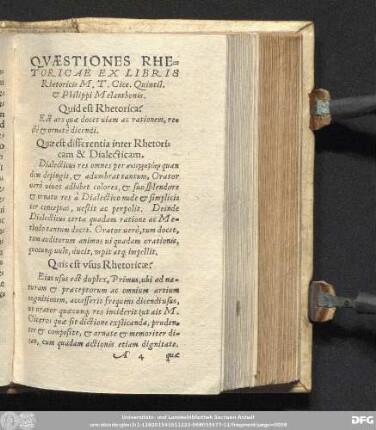 QVÆSTIONES RHE-
TORICAE EX LIBRIS
Rhetoricis M. T. Cice. Quintil.
& Philippi Melanthonis.
Quid est Rhetorica?
Est ars quæ docet uiam ac rationem, re-
ctè & ornatè dicendi.
Quæ est differentia inter Rhetori-
cam & Dialecticam.
Dialecticus res omnes per quan
dam depingit, & adumbrat tantum, Orator
uerò uiuos adhibet colores, & suo splendore
& ornatu res à Dialectico nude & simplicis
ter conceptas, uestit ac perpolit. Deinde
Dialecticus certa quadam ratione ac Me-
thodo tantum docet. Orator uerò, tum docet,
tum auditorum animos ui quadam orationis,
quocunq; uult, ducit, rapit atq; impellit.
Quis est vsus Rhetoricæ?
Eius usus est duplex, Primus, ubi ad na-
turam & præceptorum ac omnium artium
cognitionem, accesserit frequens dicendi usus,
ut orator quæcunq; res inciderit (ut ait M.
Cicero) quæ sit dictione explicanda, pruden-
ter & compositè, & ornatè & memoriter di-
cat, cum quadam actionis etiam dignitate.
A 4 quæ
Universitäts- und Landesbibliothek Sachsen-Anhalt
DFG